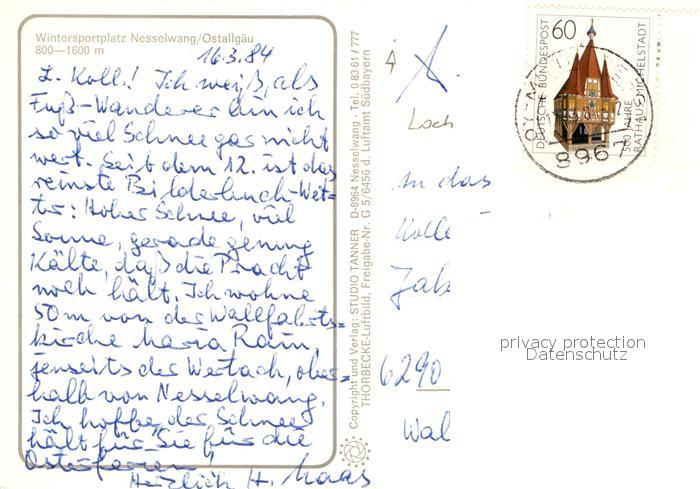 Wintersportplatz Nesselwang/Ostallgäu
800—1600 m
16.3.84
L. Koll.! Ich weiß, als
Fuß-Wanderer bin ich
so viel Schnee gar nicht
wert. Seit dem 12. ist das
reinste Bilderbuch-Wet-
ter: Hoher Schnee, viel
Sonne, gerade genug
Kälte, daß die Pracht
noch hält. Ich wohne
50 m von der Wallfahrts-
kirche Maria Rain,
jenseits der Wertach, ober-
halb von Nesselwang.
Ich hoffe, der Schnee
hält für Sie für die
Osterferien!
Herzlich H. Maas
Copyright und Verlag: STUDIO TANNER D-8964 Nesselwang · Tel. 0 83 61 / 777
THORBECKE-Luftbild, Freigabe-Nr. G 5/6456 d. Luftamt Südbayern
An das
Kolle
6290
DEUTSCHE BUNDESPOST
60
500 JAHRE
RATHAUS MICHELSTADT
896
privacy protection
Datenschutz